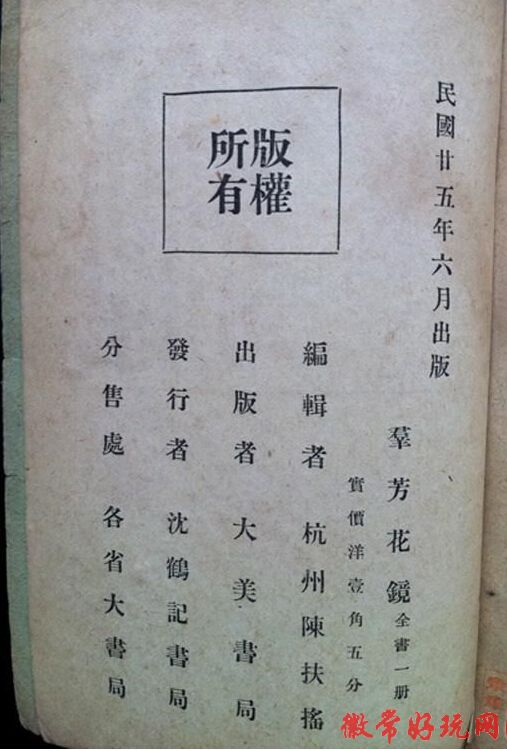 民國廿五年六月出版
羣芳花鏡 全書一册
實價洋壹角五分
編輯者 杭州陳扶搖
出版者 大美書局
發行者 沈鶴記書局
分售處 各省大書局
版權
所有
徽常好玩网